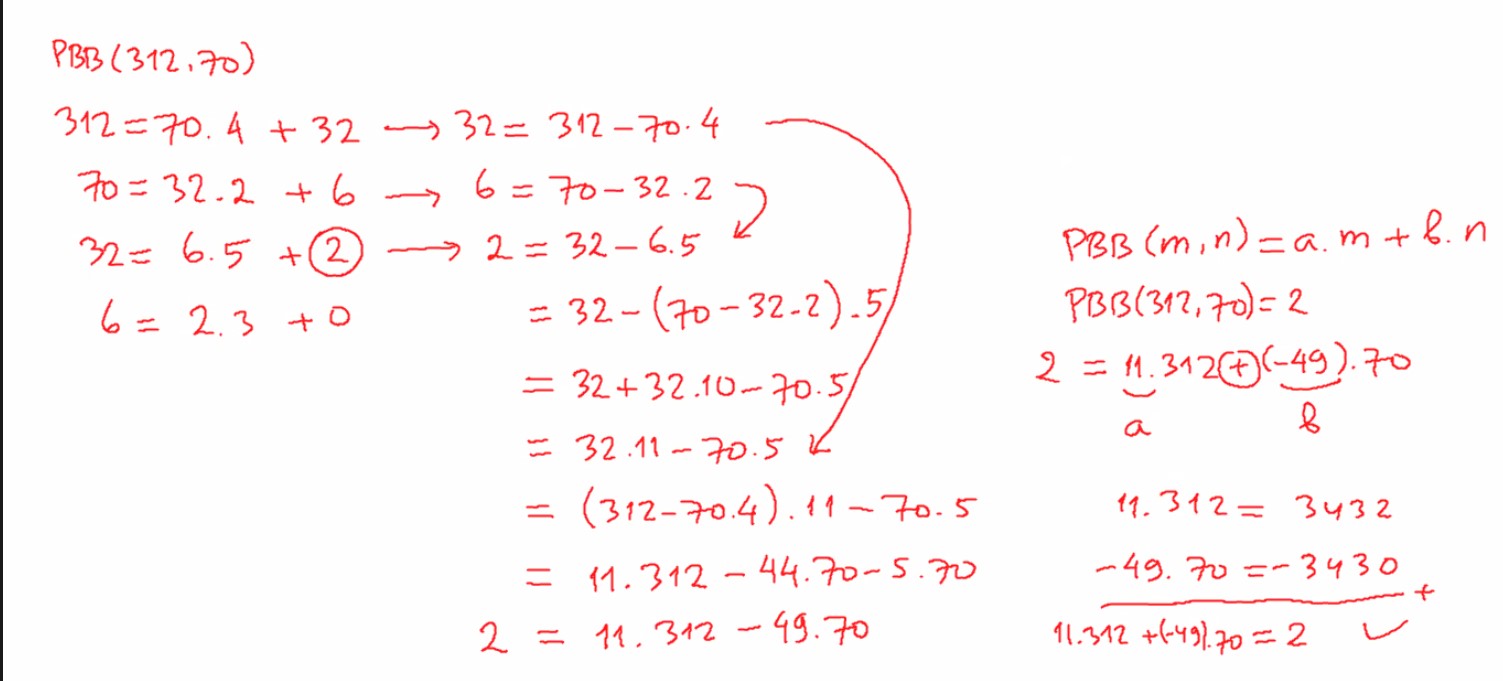 PBB(312,70)
312=70.4 + 32 → 32= 312-70.4
70=32.2 + 6 → 6 = 70-32.2
32= 6.5 + 2 → 2 = 32-6.5
6= 2.3 + 0
= 32-(70-32.2).5
= 32+32.10-70.5
= 32.11-70.5
= (312-70.4).11-70.5
= 11.312-44.70-5.70
2 = 11.312-49.70
PBB(m,n)=a.m+b.n
PBB(312,70)=2
2 = 11.312+(-49).70
a b
11.312= 3432
-49.70=-3430
+
11.312+(-49).70=2 ✓